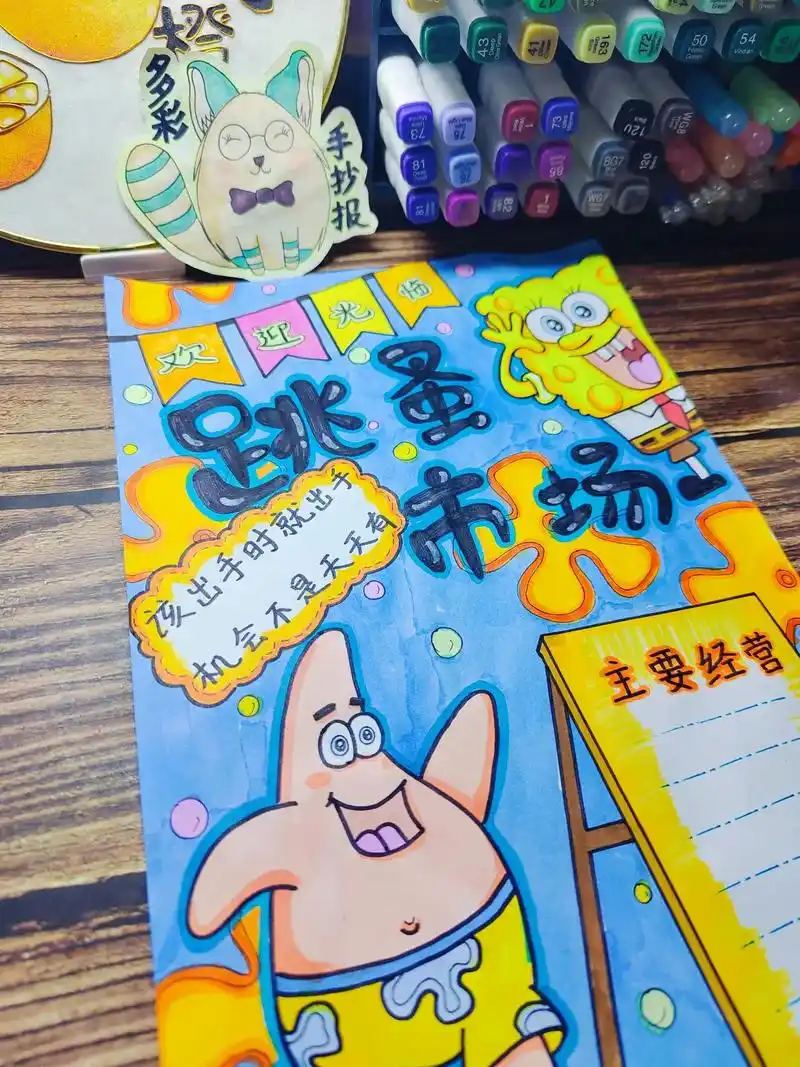 橙
多彩
手抄报
43
41
163
172
50
54
73
75
1
73
120
WG8
81
76
86
BG7
120
81
82
1
WG7
欢迎光临
跳蚤
市场
该出手时就出手
机会不是天天有
主要经营